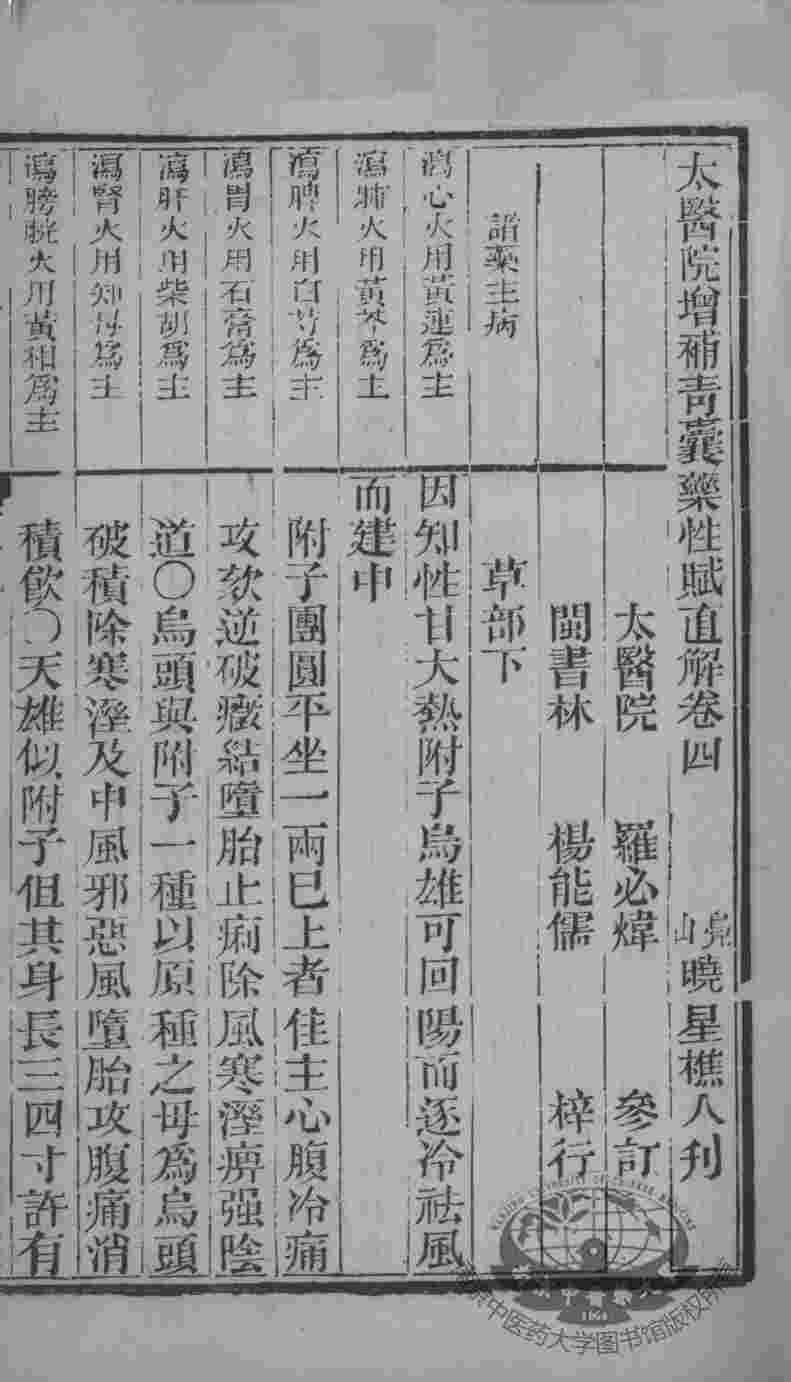 太醫院增補青囊藥性賦直解卷四
山曉星樵人刋
太醫院 羅必煒 參訂
閩書林 楊能儒 梓行
諸藥主病
瀉心火用黃連爲主
瀉肺火用黃芩爲主
瀉脾火用白芍爲主
瀉胃火用石膏爲主
瀉肝火用柴胡爲主
瀉腎火用知母爲主
瀉膀胱火用黃栢爲主
草部下
因知性甘大熱附子烏雄可回陽而逐冷祛風
而建中
附子團圓平坐一兩已上者佳主心腹冷痛
攻欬逆破癥結墮胎止痢除風寒溼痹强陰
道〇烏頭與附子一種以原種之母爲烏頭
破積除寒溼及中風邪惡風墮胎攻腹痛消
積飲〇天雄似附子但其身長三四寸許有
南京中医药大学图书馆版权所有